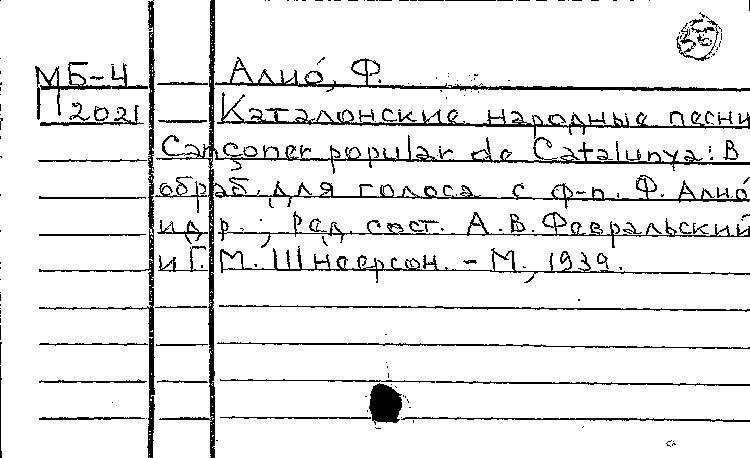 55
МБ-4 Алио́, Ф.
П2021 Каталонские народные песни
Cançoner popular de Catalunya: В
обраб. для голоса с ф-п. Ф. Алио́
и др.; Ред. сост. А.В. Февральский
и Г.М. Шнеерсон. - М., 1939.